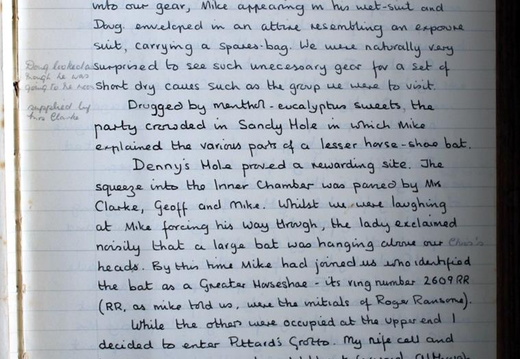 into our gear, Mike appearing in his wet-suit and
Doug enveloped in an attire resembling an exposure
suit, carrying a spares-bag. We were naturally very
Doug looked as
though he was
going to the moon
surprised to see such unecessary gear for a set of
short dry caves such as the group we were to visit.
supplied by
Mrs Clarke
Drugged by menthol-eucalyptus sweets, the
party crowded in Sandy Hole in which Mike
explained the various parts of a lesser horse-shoe bat.
Denny's Hole proved a rewarding site. The
squeeze into the Inner Chamber was passed by Mrs
Clarke, Geoff and Mike. Whilst we were laughing
at Mike forcing his way through, the lady exclaimed
noisily that a large bat was hanging above our Chris's
heads. By this time Mike had joined us who identified
the bat as a Greater Horseshoe - its ring number 2609 RR
(RR, as mike told us, were the initials of Roger Ransome).
While the others were occupied at the upper end I
decided to enter Pittard's Grotto. My nife cell and